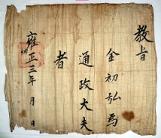 敎旨
金初弘爲
通政大夫
者
雍正三年 月 日